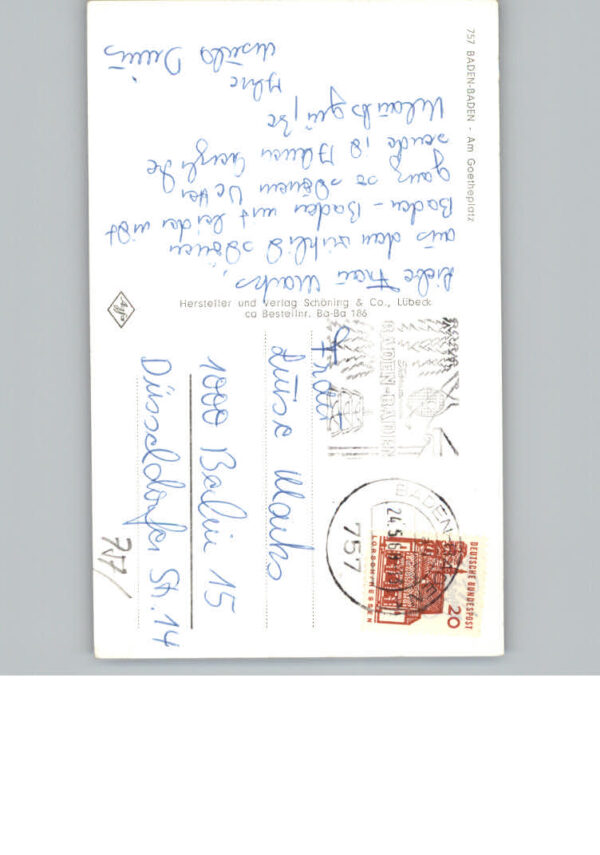 757 BADEN-BADEN - Am Goetheplatz
Liebe Frau Marks,
aus dem wirklich schönen
Baden-Baden mit leider nicht
ganz so schönem Wetter
sende ich Ihnen herzliche
Urlaubsgrüße
Ihre
Hersteller und Verlag Schöning & Co., Lübeck
Bestellnr. Ba-Ba 186
BADEN-BADEN
BADEN-BADEN
757
DEUTSCHE BUNDESPOST
20
LORSCH/HESSEN
Frau
Luise Marks
1000 Berlin 15
Düsseldorfer Str. 14
757/